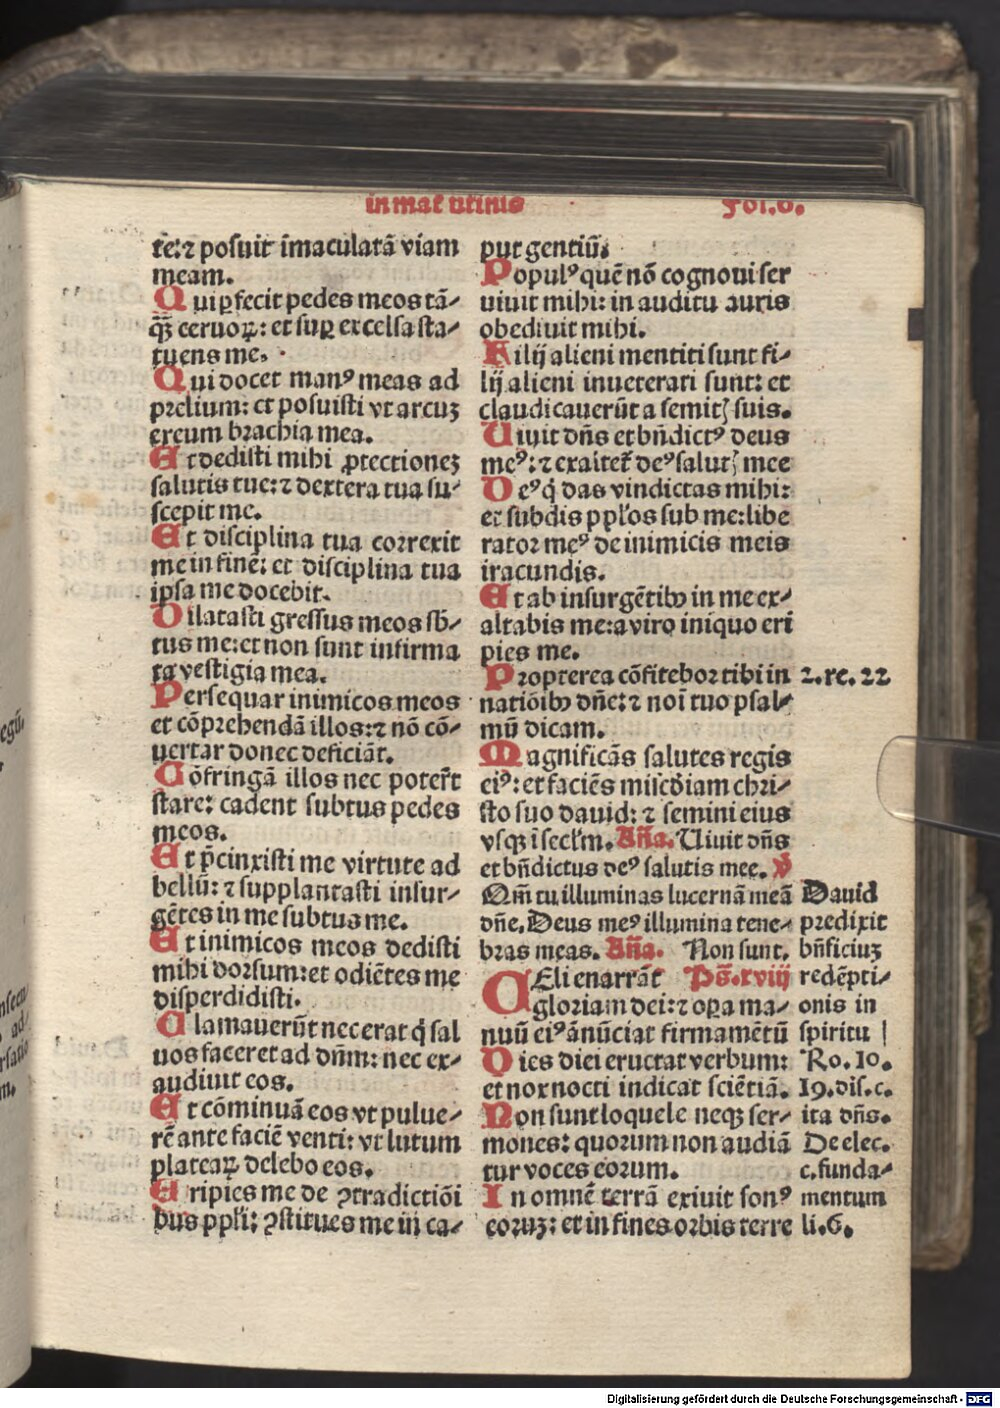 in mat utinis
Fol.6.
te:⁊ posuit īmaculatā viam
meam.
Qui ꝑfecit pedes meos tā⸗
qȝ̄ ceruoꝝ: et suꝑ excelsa sta⸗
tuens me.
Qui docet manꝰ meas ad
prelium: et posuisti vt arcuȝ
ereum brachia mea.
Et dedisti mihi ꝓtectioneȝ
salutis tue:⁊ dextera tua su⸗
scepit me.
Et disciplina tua correxit
me in finē: et disciplina tua
ipsa me docebit.
Dilatasti gressus meos sb̄⸗
tus me:et non sunt infirma
ta vestigia mea.
Persequar inimicos meos
et cōprehendā illos:⁊ nō cō⸗
uertar donec deficiāt.
Cōfringā illos nec poter̄t
stare: cadent subtus pedes
meos.
Et p̄cinxisti me virtute ad
bellū: ⁊ supplantasti insur⸗
gētes in me subtus me.
Et inimicos meos dedisti
mihi dorsum:et odiētes me
disperdidisti.
Clamauerūt nec erat q̇ sal
uos faceret ad dn̄m: nec ex⸗
audiuit eos.
Et cōminuā eos vt pulue⸗
rē ante faciē venti: vt lutum
plateaꝝ delebo eos.
Eripies me de ꝯtradictiōi
bus pp̄li: ꝯstitues me in ca⸗
put gentiū.
Populꝰ quē nō cognoui ser
uiuit mihi: in auditu auris
obediuit mihi.
Filij alieni mentiti sunt fi⸗
lij alieni inueterati sunt: et
claudicauerūt a semitꝭ suis.
Uiuit dn̄s et bn̄dictꝰ deus
meꝰ: ⁊ exaltet̄ deꝰ salutꝭ mee
Deꝰ q̇ das vindictas mihi:
et subdis pp̄los sub me:libe
rator meꝰ de inimicis meis
iracundis.
Et ab insurgētibꝰ in me ex⸗
altabis me:a viro iniquo eri
pies me.
Propterea cōfitebor tibi in
natiōibꝰ dn̄e:⁊ noī tuo psal⸗
mū dicam.
Magnificās salutes regis
eiꝰ: et faciēs mīscd̄iam chri⸗
sto suo dauid: ⁊ semini eius
vsqȝ ī secl̄m. Añа. Uiuit dn̄s
et bn̄dictus deꝰ salutis mee. ℣
Qm̄ tu illuminas lucernā meā
dn̄e. Deus meꝰ illumina tene⸗
bras meas. Añа. Non sunt.
CEli enarrāt Ps̄.xviij
gloriam dei:⁊ oꝑa ma⸗
nuū eiꝰ ānūciat firmamētū
Dies diei eructat verbum:
et nox nocti indicat sciētiā.
Non sunt loquele neqȝ ser⸗
mones: quorum non audiā
tur voces eorum.
In omnē terrā exiuit sonꝰ
eoruȝ: et in fines orbis terre
2.re. 22
Dauid
predixit
bn̄ficiuȝ
redēpti⸗
onis in
spiritu |
Ro. 10.
19.dis.c.
ita dn̄s.
De elec.
c.funda⸗
mentum
li.6.
egū.
Digitalisierung gefördert durch die Deutsche Forschungsgemeinschaft - DFG